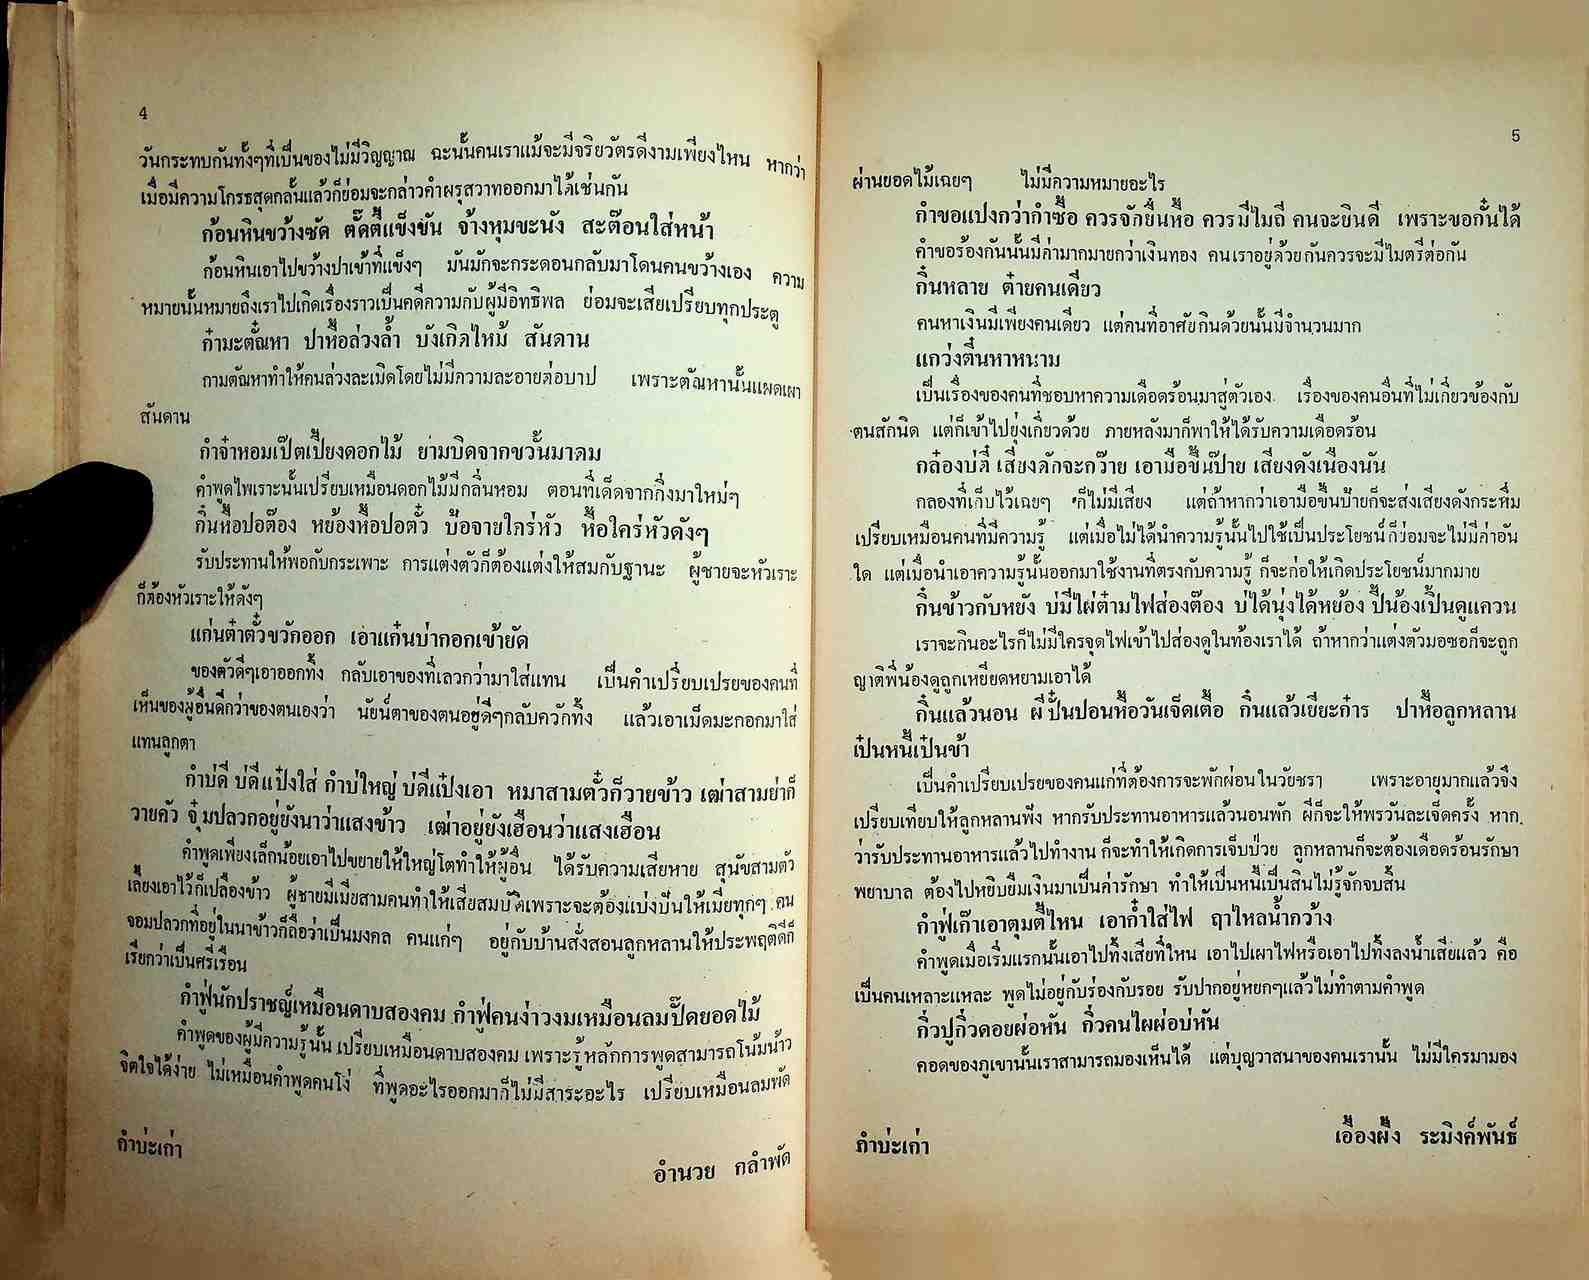 4
วันกระทบกันทั้งๆที่เป็นของไม่มีวิญญาณ ฉะนั้นคนเราแม้จะมีจริยวัตรดีงามเพียงไหน หากว่า
เมื่อมีความโกรธสุดกลั้นแล้วก็ย่อมจะกล่าวคำผรุสวาทออกมาได้เช่นกัน
ก้อนหินขว้างซัด ตั๊ดตี้แข็งขัน จ้างหุมขะนัง สะต๊อนใส่หน้า
ก้อนหินเอาไปขว้างปาเข้าที่แข็งๆ มันมักจะกระดอนกลับมาโดนคนขว้างเอง ความ
หมายนั้นหมายถึงเราไปเกิดเรื่องราวเป็นคดีความกับผู้มีอิทธิพล ย่อมจะเสียเปรียบทุกประตู
ก๋ามะตั๋ณหา ปาหื้อล่วงล้ำ บังเกิดไหม้ สันดาน
กามตัณหาทำให้คนล่วงละเมิดโดยไม่มีความละอายต่อบาป เพราะตัณหานั้นแผดเผา
สันดาน
กำจ๋าหอมเป๊ตเปี้ยงดอกไม้ ย่ามบิดจากขวั้นมาดม
คำพูดไพเราะนั้นเปรียบเหมือนดอกไม้มีกลิ่นหอม ตอนที่เด็ดจากกิ่งมาใหม่ๆ
กิ๋นหื้อปอต๊อง หย้องหื้อปอตั๋ว ป้อจายใคร่หัว หื้อใคร่หัวดังๆ
รับประทานให้พอกับกระเพาะ การแต่งตัวก็ต้องแต่งให้สมกับฐานะ ผู้ชายจะหัวเราะ
ก็ต้องหัวเราะให้ดังๆ
แก่นต๋าตั๋วขวักออก เอาแก๋นบ่ากอกเข้ายัด
ของตัวดีๆเอาออกทิ้ง กลับเอาของที่เลวกว่ามาใส่แทน เป็นคำเปรียบเปรยของคนที่
เห็นของผู้อื่นดีกว่าของตนเองว่า นัยน์ตาของตนอยู่ดีๆกลับควักทิ้ง แล้วเอาเม็ดมะกอกมาใส่
แทนลูกตา
กำบ่ดี บ่ดีแป๋งใส่ กำบ่ใหญ่ บ่ดีแป๋งเอา หมาสามตั๋วก็วายข้าว เฒ่าสามย่าก็
วายคัว จุ๋มปลวกอยู่ยังนาว่าแสงข้าว เฒ่าอยู่ยังเฮือนว่าแสงเฮือน
คำพูดเพียงเล็กน้อยเอาไปขยายให้ใหญ่โตทำให้ผู้อื่น ได้รับความเสียหาย สุนัขสามตัว
เลี้ยงเอาไว้ก็เปลืองข้าว ผู้ชายมีเมียสามคนทำให้เสียสมบัติเพราะจะต้องแบ่งปันให้เมียทุกๆ คน
จอมปลวกที่อยู่ในนาข้าวก็ถือว่าเป็นมงคล คนแก่ๆ อยู่กับบ้านสั่งสอนลูกหลานให้ประพฤติดีก็
เรียกว่าเป็นศรีเรือน
กำฟู่นักปราชญ์เหมือนดาบสองคม กำฟู่คนง่าวงมเหมือนลมปั๊ดยอดไม้
คำพูดของผู้มีความรู้นั้น เปรียบเหมือนดาบสองคม เพราะรู้หลักการพูดสามารถโน้มน้าว
จิตใจได้ง่าย ไม่เหมือนคำพูดคนโง่ ที่พูดอะไรออกมาก็ไม่มีสาระอะไร เปรียบเหมือนลมพัด
กำบ่ะเก่า
อำนวย กลำพัด
5
ผ่านยอดไม้เฉยๆ ไม่มีความหมายอะไร
กำขอแปงกว่ากำซื้อ ควรจักยื่นหื้อ ควรมีไมถี คนจะยินดี เพราะขอกั๋นได้
คำขอร้องกันนั้นมีค่ามากมายกว่าเงินทอง คนเราอยู่ด้วยกันควรจะมีไมตรีต่อกัน
กิ๋นหลาย ต๋ายคนเดียว
คนหาเงินมีเพียงคนเดียว แต่คนที่อาศัยกินด้วยนั้นมีจำนวนมาก
แกว่งตี๋นหาหนาม
เป็นเรื่องของคนที่ชอบหาความเดือดร้อนมาสู่ตัวเอง เรื่องของคนอื่นที่ไม่เกี่ยวข้องกับ
ตนสักนิด แต่ก็เข้าไปยุ่งเกี่ยวด้วย ภายหลังมาก็พาให้ได้รับความเดือดร้อน
กล๋องบ่ตี๋ เสี่ยงดักจะกว๊าย เอามือขึ้นป๊าย เสี่ยงดังเนื่องนัน
กลองที่เก็บไว้เฉยๆ ก็ไม่มีเสียง แต่ถ้าหากว่าเอามือขึ้นป้ายก็จะส่งเสียงดังกระหึ่ม
เปรียบเหมือนคนที่มีความรู้ แต่เมื่อไม่ได้นำความรู้นั้นไปใช้เป็นประโยชน์ ก็ย่อมจะไม่มีค่าอัน
ใด แต่เมื่อนำเอาความรู้นั้นออกมาใช้งานที่ตรงกับความรู้ ก็จะก่อให้เกิดประโยชน์มากมาย
กิ๋นข้าวกับหยัง บ่มีไผต๋ามไฟส่องต๊อง บ่ได้นุ่งได้หย้อง ปี้น้องเปิ้นดูแควน
เราจะกินอะไรก็ไม่มีใครจุดไฟเข้าไปส่องดูในท้องเราได้ ถ้าหากว่าแต่งตัวมอซอก็จะถูก
ญาติพี่น้องดูถูกเหยียดหยามเอาได้
กิ๋นแล้วนอน ผีปั๋นปอนหื้อวันเจ็ดเตื้อ กิ๋นแล้วเยียะก๋าร ปาหื้อลูกหลาน
เป๋นหนี้เป๋นข้า
เป็นคำเปรียบเปรยของคนแก่ที่ต้องการจะพักผ่อนในวัยชรา เพราะอายุมากแล้วจึง
เปรียบเทียบให้ลูกหลานฟัง หากรับประทานอาหารแล้วนอนพัก ผีก็จะให้พรวันละเจ็ดครั้ง หาก
ว่ารับประทานอาหารแล้วไปทำงาน ก็จะทำให้เกิดการเจ็บป่วย ลูกหลานก็จะต้องเดือดร้อนรักษา
พยาบาล ต้องไปหยิบยืมเงินมาเป็นค่ารักษา ทำให้เป็นหนี้เป็นสินไม่รู้จักจบสิ้น
กำฟู่เก๊าเอาตุมตี้ไหน เอาก๋ำใส่ไฟ ฤาไหลน้ำกว้าง
คำพูดเมื่อเริ่มแรกนั้นเอาไปทิ้งเสียที่ไหน เอาไปเผาไฟหรือเอาไปทิ้งลงน้ำเสียแล้ว คือ
เป็นคนเหลาะแหละ พูดไม่อยู่กับร่องกับรอย รับปากอยู่หยกๆแล้วไม่ทำตามคำพูด
กิ่วปูกิ่วดอยผ่อหัน กิ่วคนไผผ่อบ่หัน
คอดของภูเขานั้นเราสามารถมองเห็นได้ แต่บุญวาสนาของคนเรานั้น ไม่มีใครมามอง
กำบ่ะเก่า
เอื้องผึ้ง ระมิงค์พันธ์